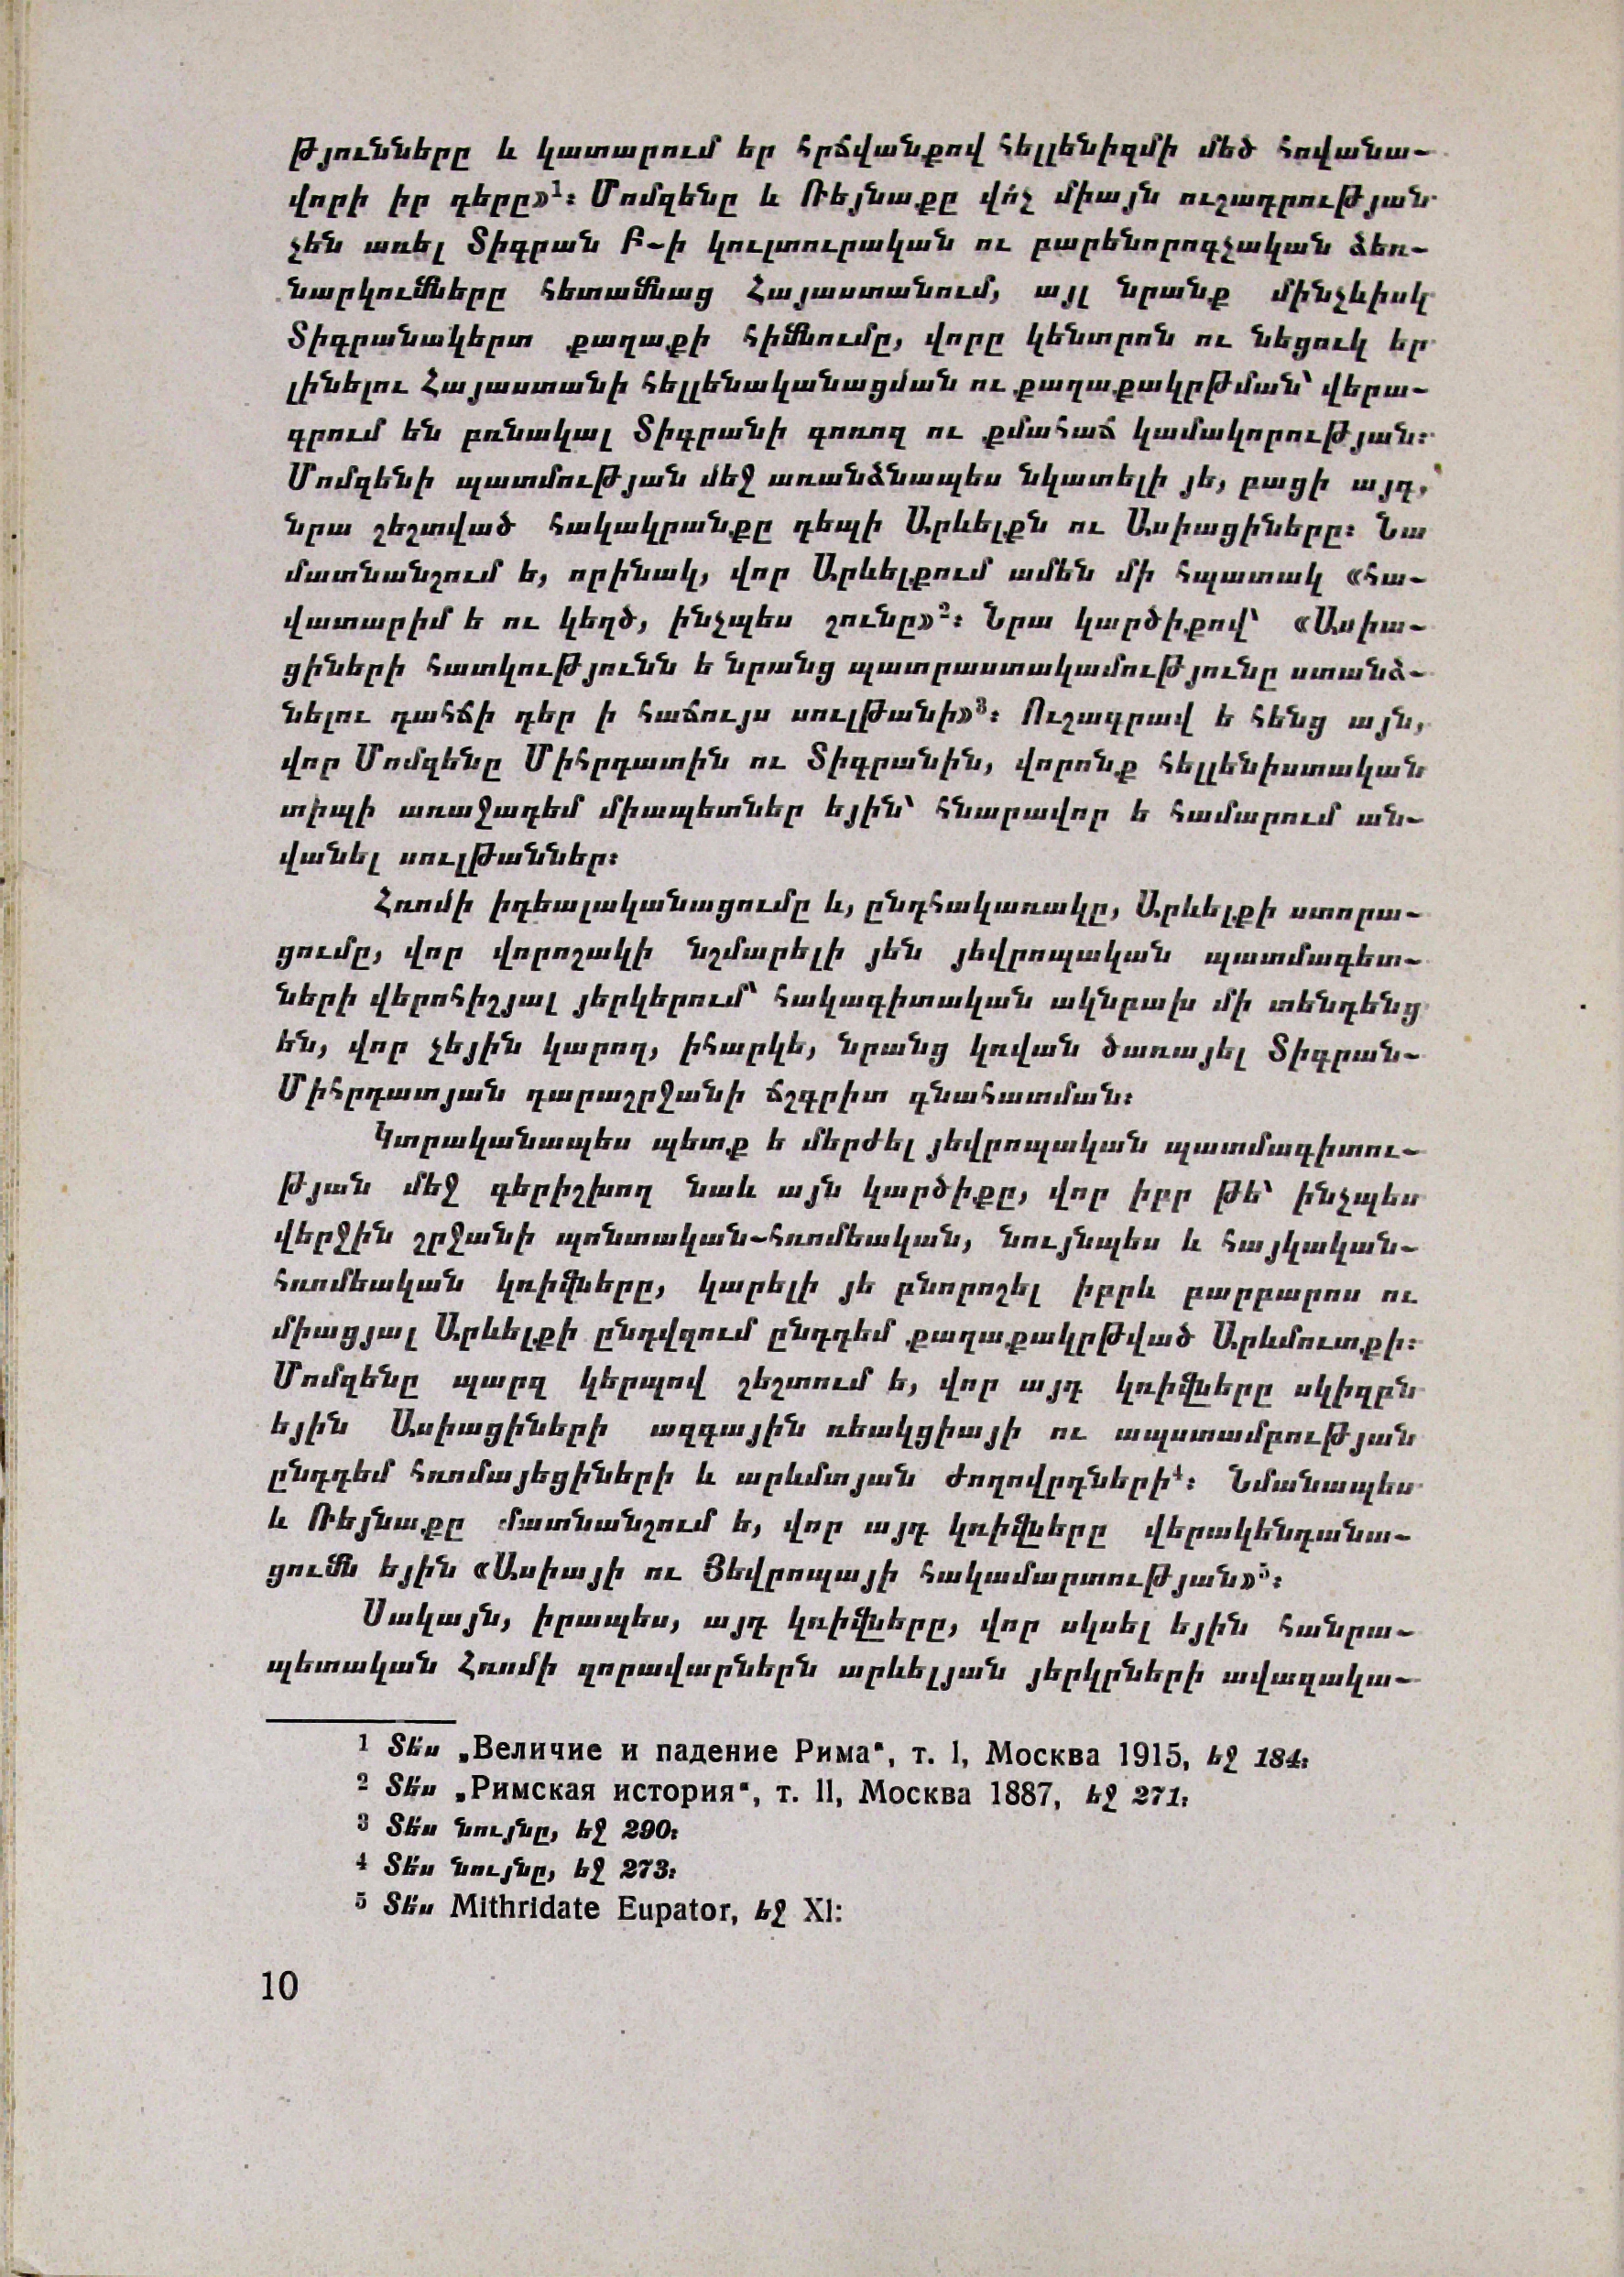 թյունները և կատարում եր հրճվանքով հելլենիզմի մեծ հովանա-
վորի իր դերը»¹։ Մոմզենը և Ռեյնաքը վո՛չ միայն ուշադրության
չեն առել Տիգրան Բ-ի կուլտուրական ու բարենորոգչական ձեռ-
նարկումները հետամնաց Հայաստանում, այլ նրանք մինչևիսկ
Տիգրանակերտ քաղաքի հիմնումը, վորը կենտրոն ու նեցուկ եր
լինելու Հայաստանի հելլենականացման ու քաղաքակրթման՝ վերա-
գրում են բռնակալ Տիգրանի գոռոզ ու քմահաճ կամակորության։
Մոմզենի պատմության մեջ առանձնապես նկատելի յե, բացի այդ,
նրա շեշտված հակակրանքը դեպի Արևելքն ու Ասիացիները։ Նա
մատնանշում ե, որինակ, վոր Արևելքում ամեն մի հպատակ «հա-
վատարիմ ե ու կեղծ, ինչպես շունը»²։ Նրա կարծիքով՝ «Ասիա-
ցիների հատկությունն ե նրանց պատրաստակամությունը ստանձ-
նելու դահճի դեր ի հաճույս սուլթանի»³։ Ուշագրավ ե հենց այն,
վոր Մոմզենը Միհրդատին ու Տիգրանին, վորոնք հելլենիստական
տիպի առաջադեմ միապետներ եյին՝ հնարավոր ե համարում ան-
վանել սուլթաններ։
Հռոմի իդեալականացումը և, ընդհակառակը, Արևելքի ստորա-
ցումը, վոր վորոշակի նշմարելի յեն յեվրոպական պատմագետ-
ների վերոհիշյալ յերկերում՝ հակագիտական ակնբախ մի տենդենց
են, վոր չեյին կարող, իհարկե, նրանց կռվան ծառայել Տիգրան-
Միհրդատյան դարաշրջանի ճշգրիտ գնահատման։
Կտրականապես պետք ե մերժել յեվրոպական պատմագիտու-
թյան մեջ գերիշխող նաև այն կարծիքը, վոր իբր թե՝ ինչպես
վերջին շրջանի պոնտական-հռոմեական, նույնպես և հայկական-
հռոմեական կռիվները, կարելի յե բնորոշել իբրև բարբարոս ու
միացյալ Արևելքի ընդվզում ընդդեմ քաղաքակրթված Արևմուտքի։
Մոմզենը պարզ կերպով շեշտում ե, վոր այդ կռիվները սկիզբն
եյին Ասիացիների ազգային ռեակցիայի ու ապստամբության
ընդդեմ հռոմայեցիների և արևմտյան ժողովրդների⁴։ Նմանապես
և Ռեյնաքը մատնանշում ե, վոր այդ կռիվները վերակենդանա-
ցումն եյին «Ասիայի ու Յեվրոպայի հակամարտության»⁵։
Սակայն, իրապես, այդ կռիվները, վոր սկսել եյին հանրա-
պետական Հռոմի զորավարներն արևելյան յերկրների ավազակա-
¹ Տե՛ս „Величие и падение Рима“, т. I, Москва 1915, եջ 184։
² Տե՛ս „Римская история“, т. II, Москва 1887, եջ 271։
³ Տե՛ս նույնը, եջ 290։
⁴ Տե՛ս նույնը, եջ 273։
⁵ Տե՛ս Mithridate Eupator, եջ XI։
10